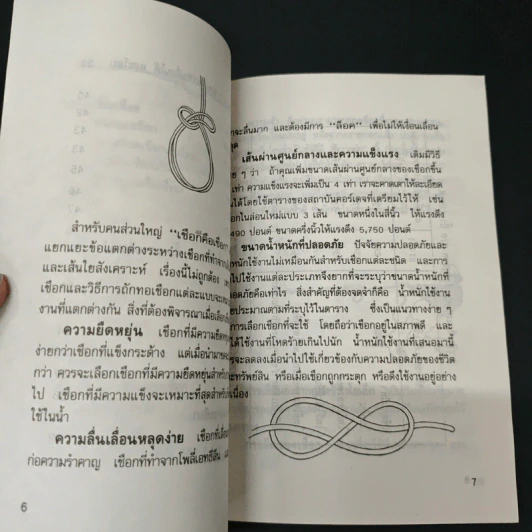 สำหรับคนส่วนใหญ่ "เชือกก็คือเชือก
แยกแยะข้อแตกต่างระหว่างเชือกที่ทำจาก
และเส้นใยสังเคราะห์ เรื่องนี้ไม่ถูกต้อง
เชือกและวิธีการถักทอเชือกแต่ละแบบจะ
งานที่แตกต่างกัน สิ่งที่ต้องพิจารณาเมื่อเลือก
ความยืดหยุ่น เชือกที่มีความยืด
ง่ายกว่าเชือกที่แข็งกระด้าง แต่เมื่อนำมา
กว่า ควรจะเลือกเชือกที่มีความยืดหยุ่นสำหรับ
ไป เชือกที่มีความแข็งจะเหมาะที่สุดสำหรับ
ใช้ในน้ำ
ความลื่นเลื่อนหลุดง่าย เชือกที่ลื่น
ก่อความรำคาญ เชือกที่ทำจากโพลี่เอทธีลีน
6
จะลื่นมาก และต้องมีการ "ล็อค" เพื่อไม่ให้เงื่อนเลื่อน
เส้นผ่านศูนย์กลางและความแข็งแรง เดิมมีวิธี
ย ๆ ว่า ถ้าคุณเพิ่มขนาดเส้นผ่านศูนย์กลางของเชือกขึ้น
เท่า ความแข็งแรงจะเพิ่มเป็น 4 เท่า เราจะคาดเดาให้ละเอียด
โดยใช้ตารางของสถาบันคอร์เดจที่เตรียมไว้ให้ เช่น
อกไนล่อนใหม่แบบ 3 เส้น ขนาดหนึ่งในสี่นิ้ว ให้แรงดึง
490 ปอนด์ ขนาดครึ่งนิ้วให้แรงดึง 5,750 ปอนด์
ขนาดน้ำหนักที่ปลอดภัย ปัจจัยความปลอดภัยและ
น้ำหนักใช้งานไม่เหมือนกันสำหรับเชือกแต่ละชนิด และการ
ไปใช้งานแต่ละประเภทจึงยากที่จะระบุว่าขนาดน้ำหนักที่
อดภัยคือเท่าไร สิ่งสำคัญที่ต้องจดจำก็คือ น้ำหนักใช้งาน
ยประมาณตามที่ระบุไว้ในตาราง ซึ่งเป็นแนวทางง่าย ๆ
การเลือกเชือกที่จะใช้ โดยถือว่าเชือกอยู่ในสภาพดี และ
ได้ใช้งานที่โหดร้ายเกินไปนัก น้ำหนักใช้งานที่เสนอมานี้
จะลดลงเมื่อนำไปใช้เกี่ยวข้องกับความปลอดภัยของชีวิต
ะทรัพย์สิน หรือเมื่อเชือกถูกกระตุก หรือดึงใช้งานอยู่อย่าง
เนื่อง
7